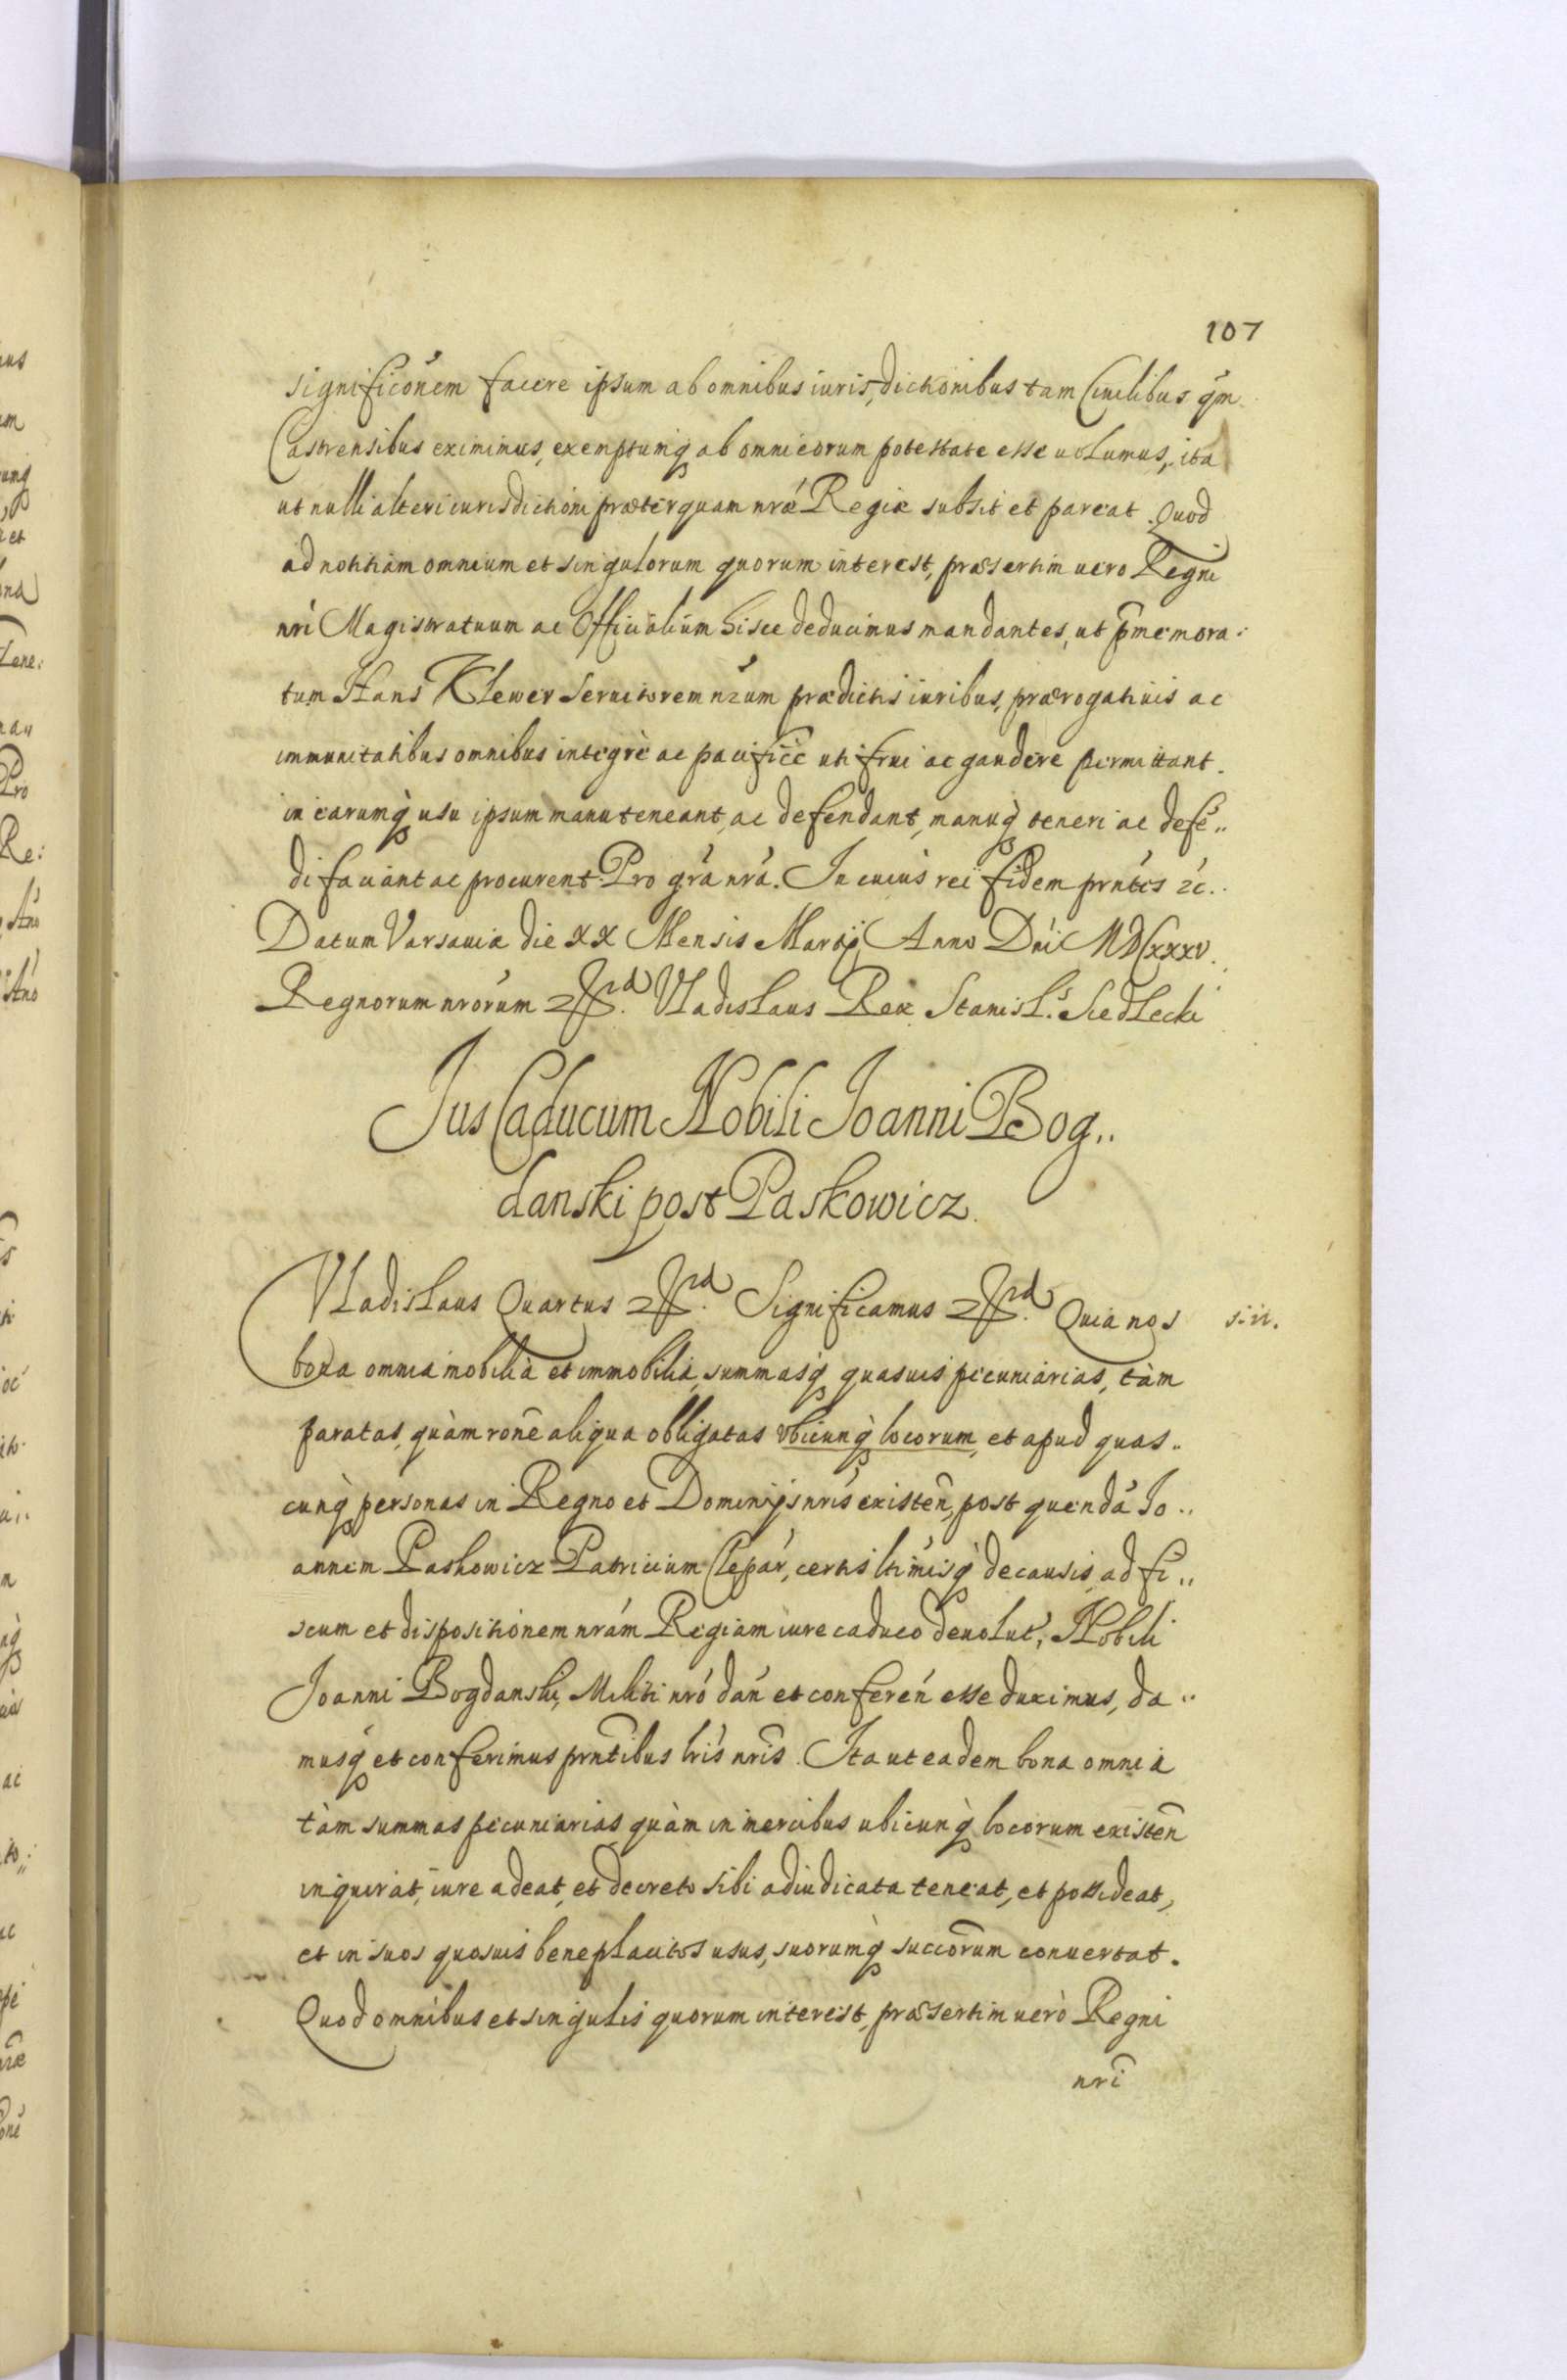 107
significónem facere ipsum ab omnibus iurisdictionibus tam Ciuilibus qm̃
Castrensibus eximimus, exemptumq ab omni eorum potestate esse uolumus, ita
ut nulli alteri iurisdictioni præterquam nræ Regiæ subsit et pareat. Quod
ad notitiam omnium et singulorum quorum interest, præsertim uero Regni
nri Magistratuum ac Officialium hisce deducimus mandantes, ut pmemora:
tum Hans Klewer Seruitorem nrum prædictis iuribus, prærogatiuis ac
immunitatibus omnibus integrè ac pacificè uti frui ac gaudere permittant.
in earumq usu ipsum manuteneant, ac defendant, manuq teneri ac defe..
di faciant ac procurent Pro gra nra. In cuius rei fidem prntes 2c..
Datum Varsauiæ die XX Mensis Martij Anno Dni MDCXXXV.
Regnorum nrorum Vladislaus Rex Stanisl.s Siedlecki
Jus Caducum Nobili Joanni Bog..
danski post Paskowicz.
Vladislaus Quartus Significamus Quia nos
bona omnia mobilia et immobilia, summasq quasuis pecuniarias, tàm
paratas, quàm rone aliqua obligatas vbicunq locorum, et apud quas..
cunq personas in Regno et Dominijs nris existen, post quendã Jo..
annem Paskowicz Patricium Clepar, certis ltimisq de causis, ad fi..
scum et dispositionem nram Regiam iure caduco deuolut, Nobili
Joanni Bogdanski, Militi nro dan et conferen esse duximus, da..
musq et conferimus prntibus lris nris. Ita ut eadem bona omnia
tàm summas pecuniarias, quàm in mercibus ubicunq locorum existen
inquirat, iure adeat, et decreto sibi adiudicata teneat, et possideat,
et in suos quosuis beneplacitos usus, suorumq succorum conuertat.
Quod omnibus et singulis quorum interest, præsertim uerò Regni
nri